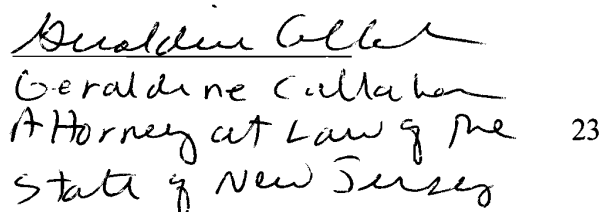 Geraldine Callahan
Geraldine Callahan
Attorney at Law of the 23
State of New Jersey